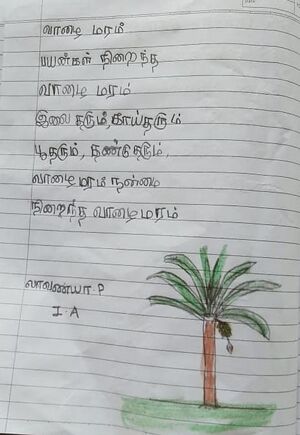 வாழை மரம்
பயன்கள் நிறைந்த
வாழை மரம்
இலை தரும், காய்தரும்
பூதரும், தண்டுதரும்,
வாழை மரம் நன்மை
நிறைந்த வாழைமரம்
லாவண்யா.P
I.A